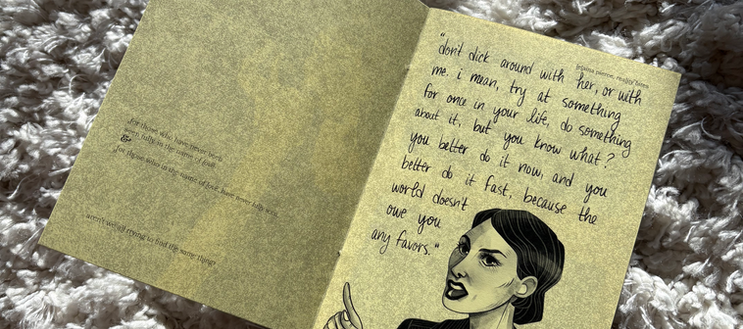 for those who have never been
been bully in the name of love
&
for those who in the name of love, have been bully with
aren't we all trying to find the same thing?
lelaina pierce, reality bites
"don't dick around with her, or with
me. i mean, try at something
for once in your life, do something
about it, but you know what?
you better do it now, and you
better do it fast, because the
world doesn't
owe you
any favors."